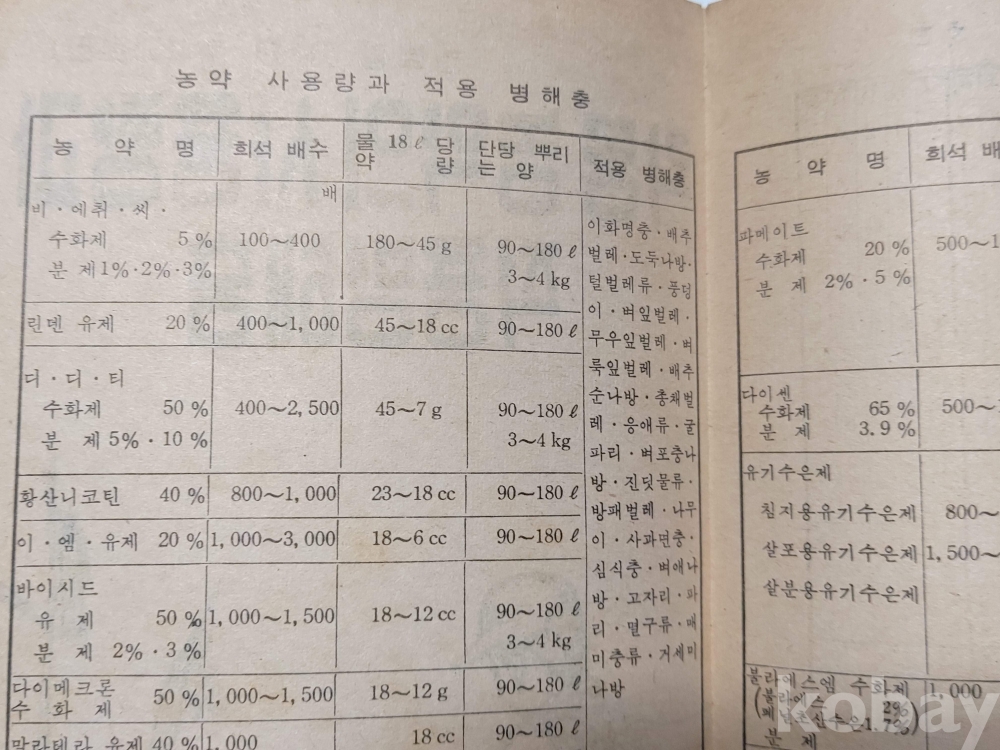 농약 사용량과 적용 병해충
농 약 명 희석 배수 물 18ℓ 당 약 량 단당 뿌리는 양 적용 병해충
배
비·에취·씨·
수화제 5% 100~400 180~45g 90~180ℓ
분 제1%·2%·3% 3~4kg
린덴 유제 20% 400~1,000 45~18cc 90~180ℓ
디·디·티
수화제 50% 400~2,500 45~7g 90~180ℓ
분 제5%·10% 3~4kg
황산니코틴 40% 800~1,000 23~18cc 90~180ℓ
이·엠·유제 20% 1,000~3,000 18~6cc 90~180ℓ
바이시드
유 제 50% 1,000~1,500 18~12cc 90~180ℓ
분 제 2%·3% 3~4kg
다이메크론
수 화 제 50% 1,000~1,500 18~12g 90~180ℓ
말라테라 유제 40% 1,000 18cc 90~180ℓ
이화명충·배추
벌레·도둑나방·
털벌레류·풍뎅
이·벼잎벌레·
무우잎벌레·벼
룩잎벌레·배추
순나방·총채벌
레·응애류·굴
파리·벼포충나
방·진딧물류·
방패벌레·나무
이·사과면충·
심식충·벼애나
방·고자리·파
리·멸구류·매
미충류·거세미
나방
농 약 명 희석 배
파메이트
수화제 20% 500~1
분 제 2%·5%
다이센
수화제 65% 500~
분 제 3.9%
유기수은제
침지용유기수은제 800~
살포용유기수은제 1,500~
살분용유기수은제
불라에스엠 수화제 1,000
불라에스 2%
1.7%
분 제
kobay